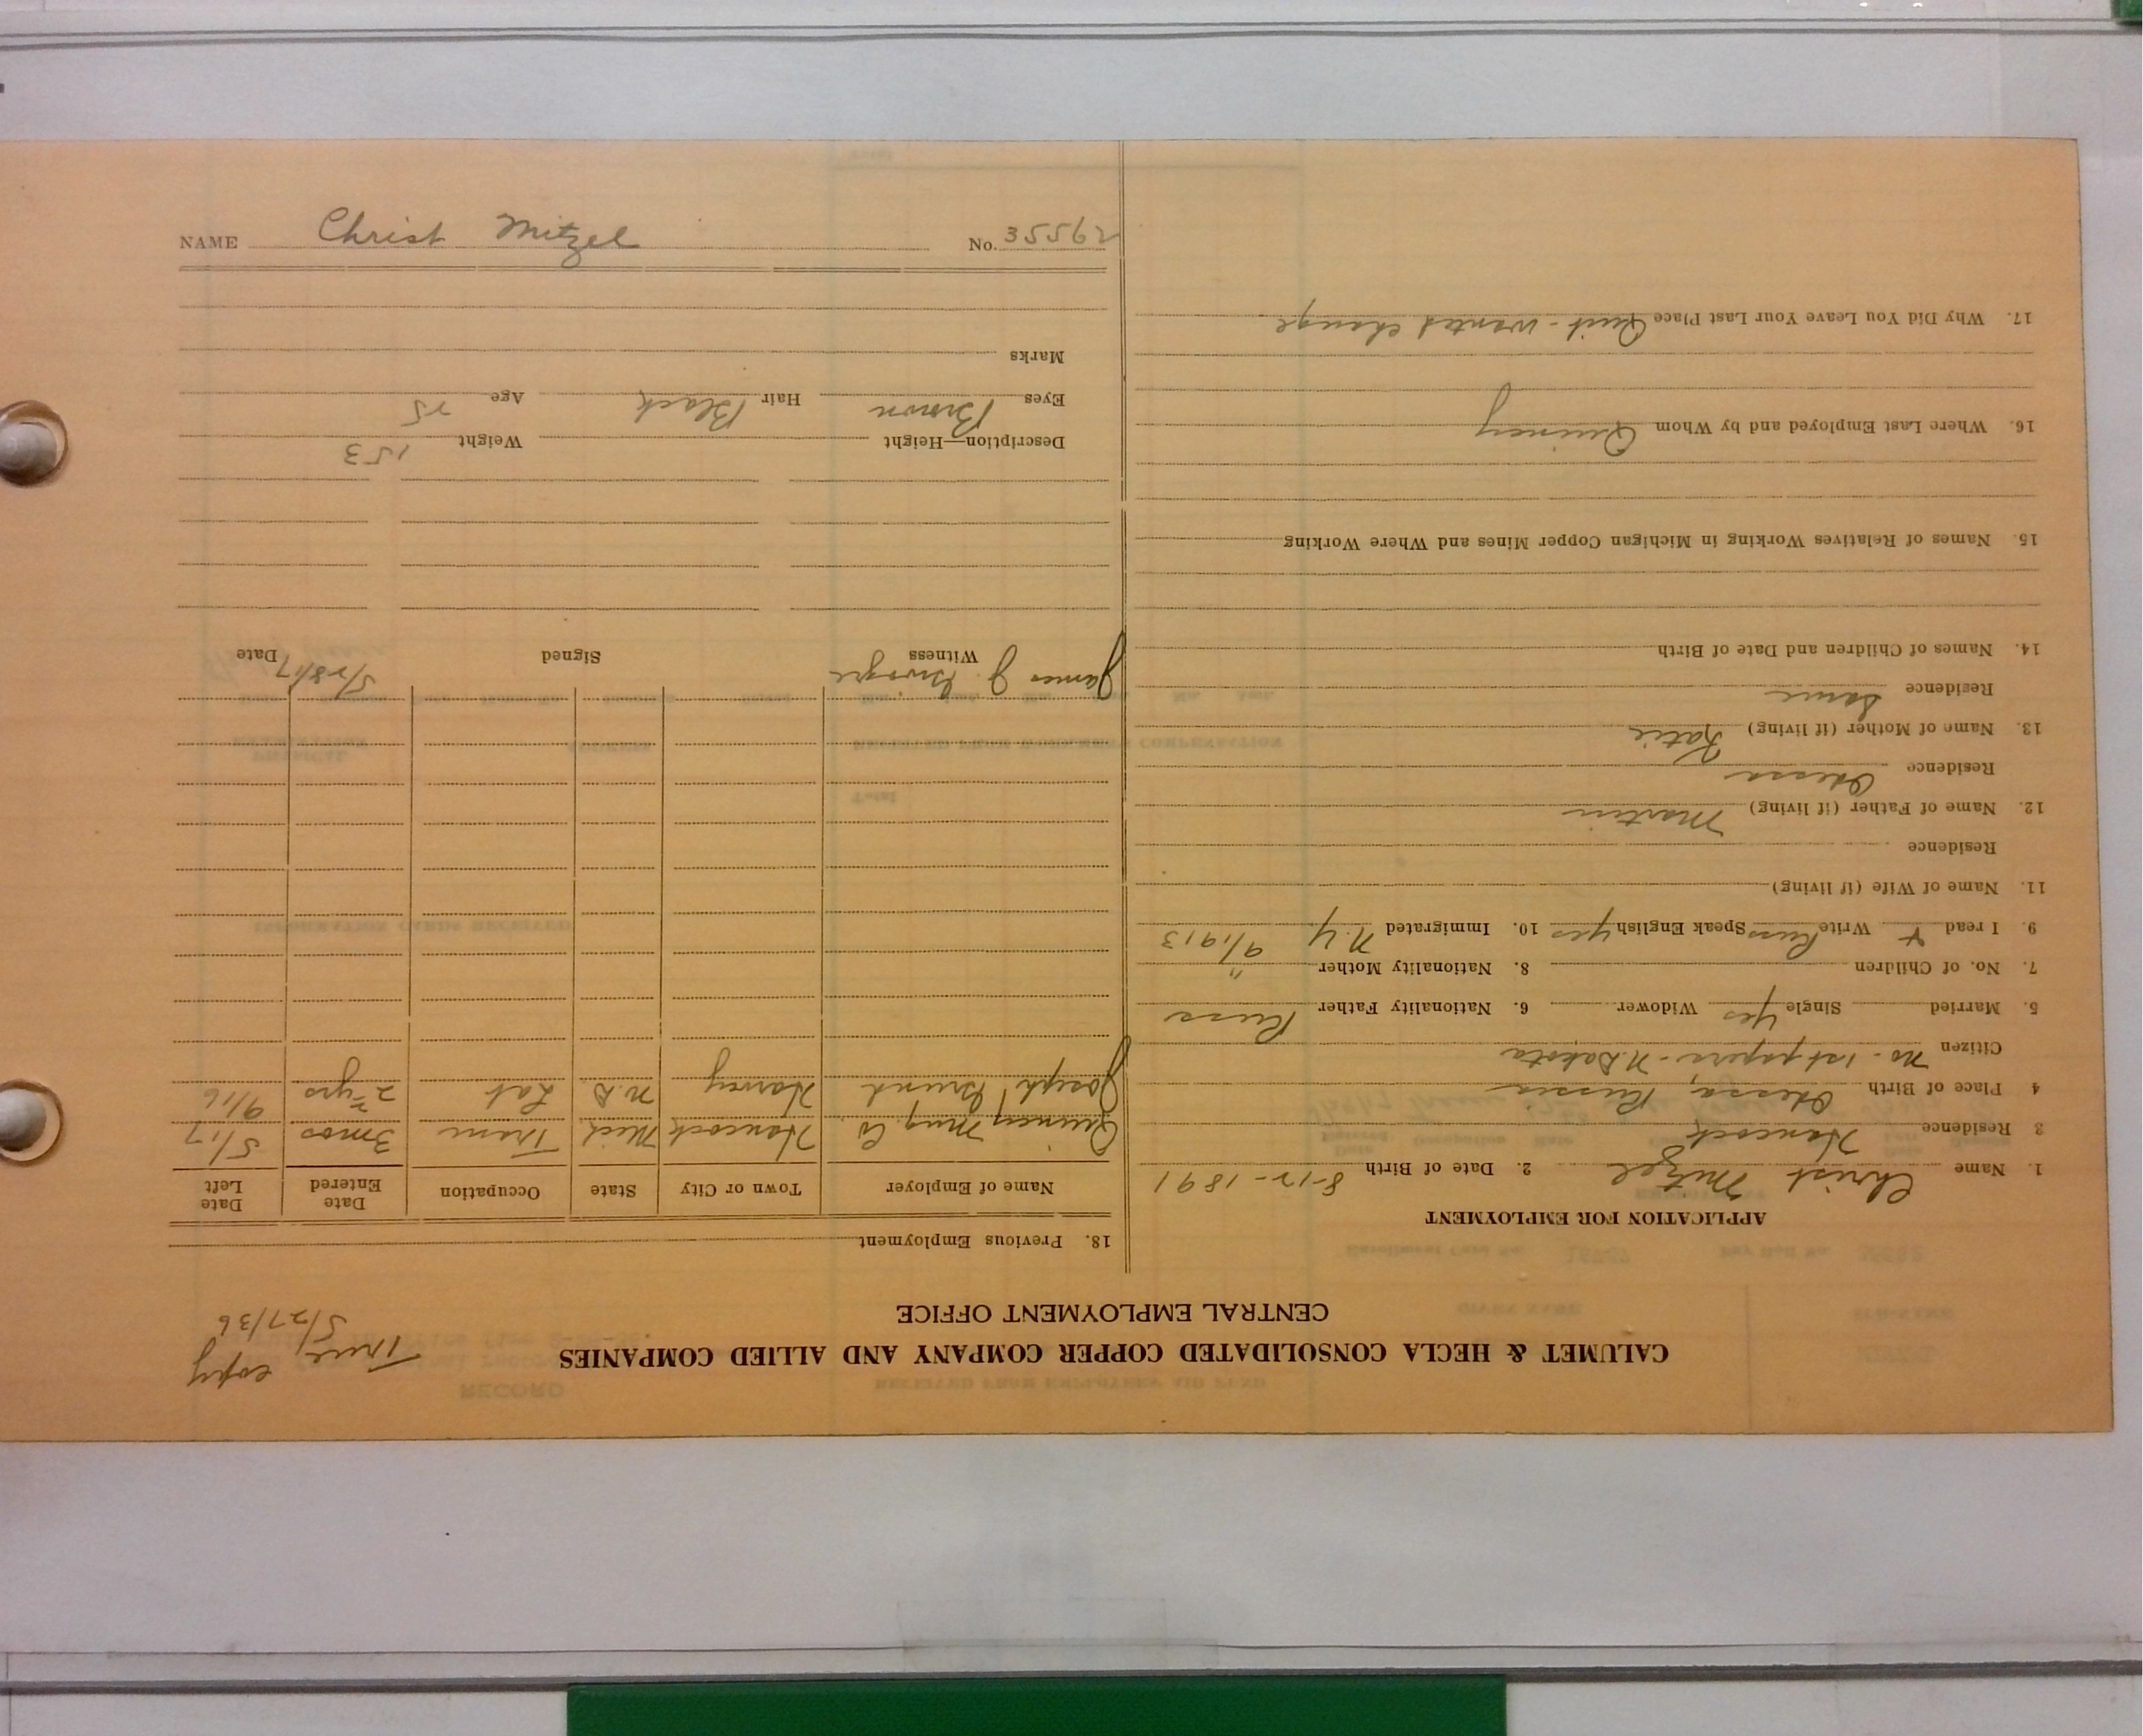 CALUMET & HECLA CONSOLIDATED COPPER COMPANY AND ALLIED COMPANIES
CENTRAL EMPLOYMENT OFFICE
True copy
5/27/36
APPLICATION FOR EMPLOYMENT
1. Name Christ Mitzel 2. Date of Birth 8-12-1891
3 Residence Hancock
4 Place of Birth Odessa, Russia
Citizen no - 1st papers - N. Dakota
5. Married Single yes Widower 6. Nationality Father Russ
7. No. of Children 8. Nationality Mother "
9. I read + Write Russ Speak English yes 10. Immigrated N.Y 9/1913
11. Name of Wife (if living)
Residence
12. Name of Father (if living) Martin
Residence Odessa
13. Name of Mother (if living) Katie
Residence Same
14. Names of Children and Date of Birth
15. Names of Relatives Working in Michigan Copper Mines and Where Working
16. Where Last Employed and by Whom Quincy
17. Why Did You Leave Your Last Place Quit - wanted change
18. Previous Employment
Name of Employer Town or City State Occupation Date Entered Date Left
Quincy Mng Co Hancock Mich Tram 3 mos 5/17
Joseph Harvey N.D. Lab 2 yrs 9/16
James J.
Witness Signed Date 5/28/17
Description—Height Weight 153
Eyes Brown Hair Black Age 25
Marks
NAME Christ Mitzel No. 35562